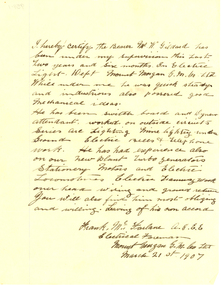 I hereby certify the Bearer Mr W Eland has
been under my supervision this last
Two years and six months in Electric
Light Dept Mount Morgan G.M. Co Ltd
While under me he was quick steady
and industrious also possessed good
Mechanical ideas
He has been switch board and
attendant worked on outside circuits
Series Arc Lighting
Telephone
work. He has had experience also
on our New Plant Turbo generators
Stationary Motors and Electric
Locomotives Electric Tramway
over head wiring and ground return
You will also find him most obliging
and willing. Leaving of his own accord
Frank McFarlane
Electrical Foreman
Mount Morgan G.M. Co Ltd
March 21st 1907